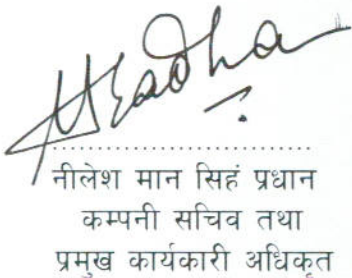 ..............................
नीलेश मान सिहं प्रधान
कम्पनी सचिव तथा
प्रमुख कार्यकारी अधिकृत